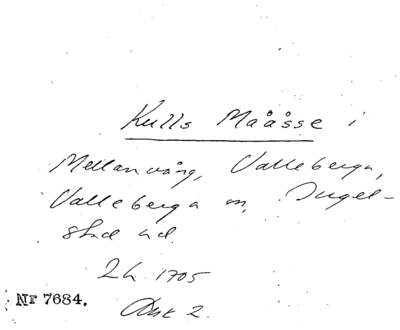 Kulls Maåsse i
Mellanvång, Valleberga,
Valleberga sn, Ingel-
stad hd.
LH 1705
Akt 2.
Nr 7684.